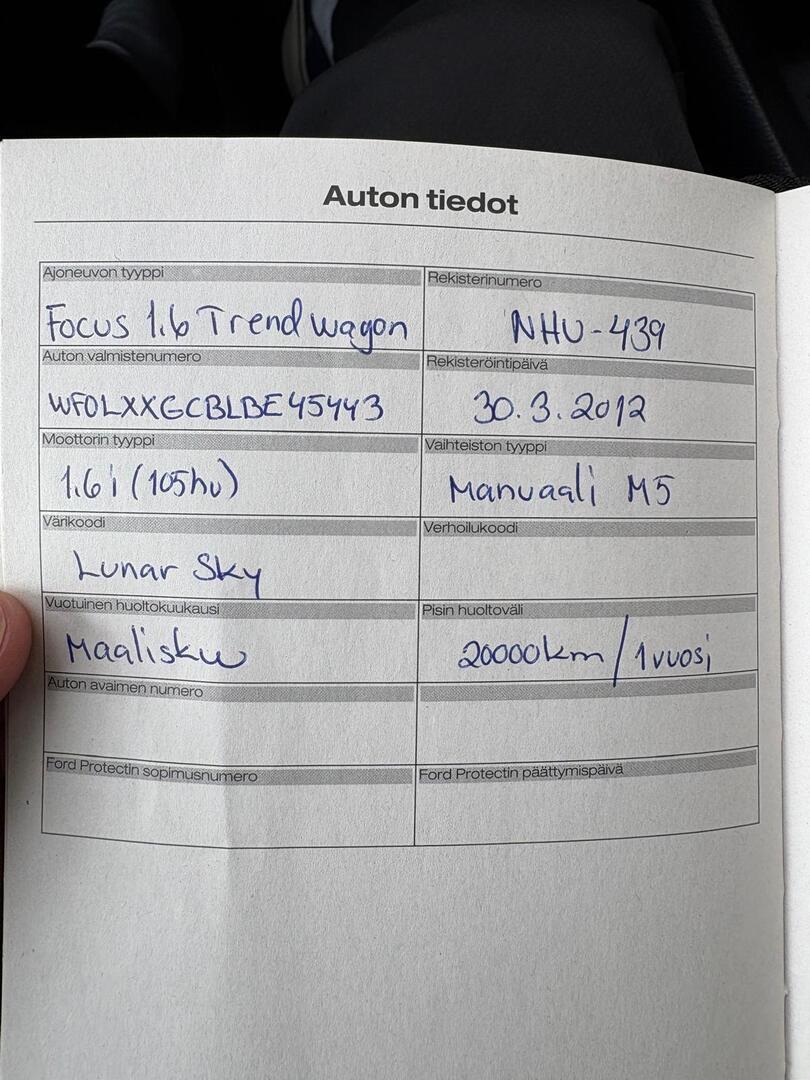 Auton tiedot
Ajoneuvon tyyppi
Focus 1.6 Trend wagon
Rekisterinumero
NHU-439
Auton valmistenumero
WF0LXXGCBLBE45443
Rekisteröintipäivä
30.3.2012
Moottorin tyyppi
1.6i (105hv)
Vaihteiston tyyppi
Manuaali M5
Värikoodi
Lunar Sky
Verhoilukoodi
Vuotuinen huoltokuukausi
Maalisku
Pisin huoltoväli
20000km/1vuosi
Auton avaimen numero
Ford Protectin sopimusnumero
Ford Protectin päättymispäivä